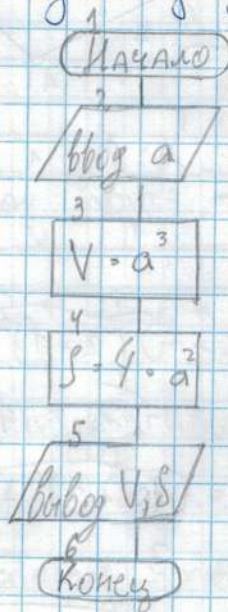 1
Начало
2
ввод a
3
V = a³
4
S = 4 · a²
5
вывод V, S
6
Конец